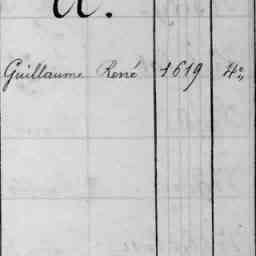 Guillaume René 1619 4º